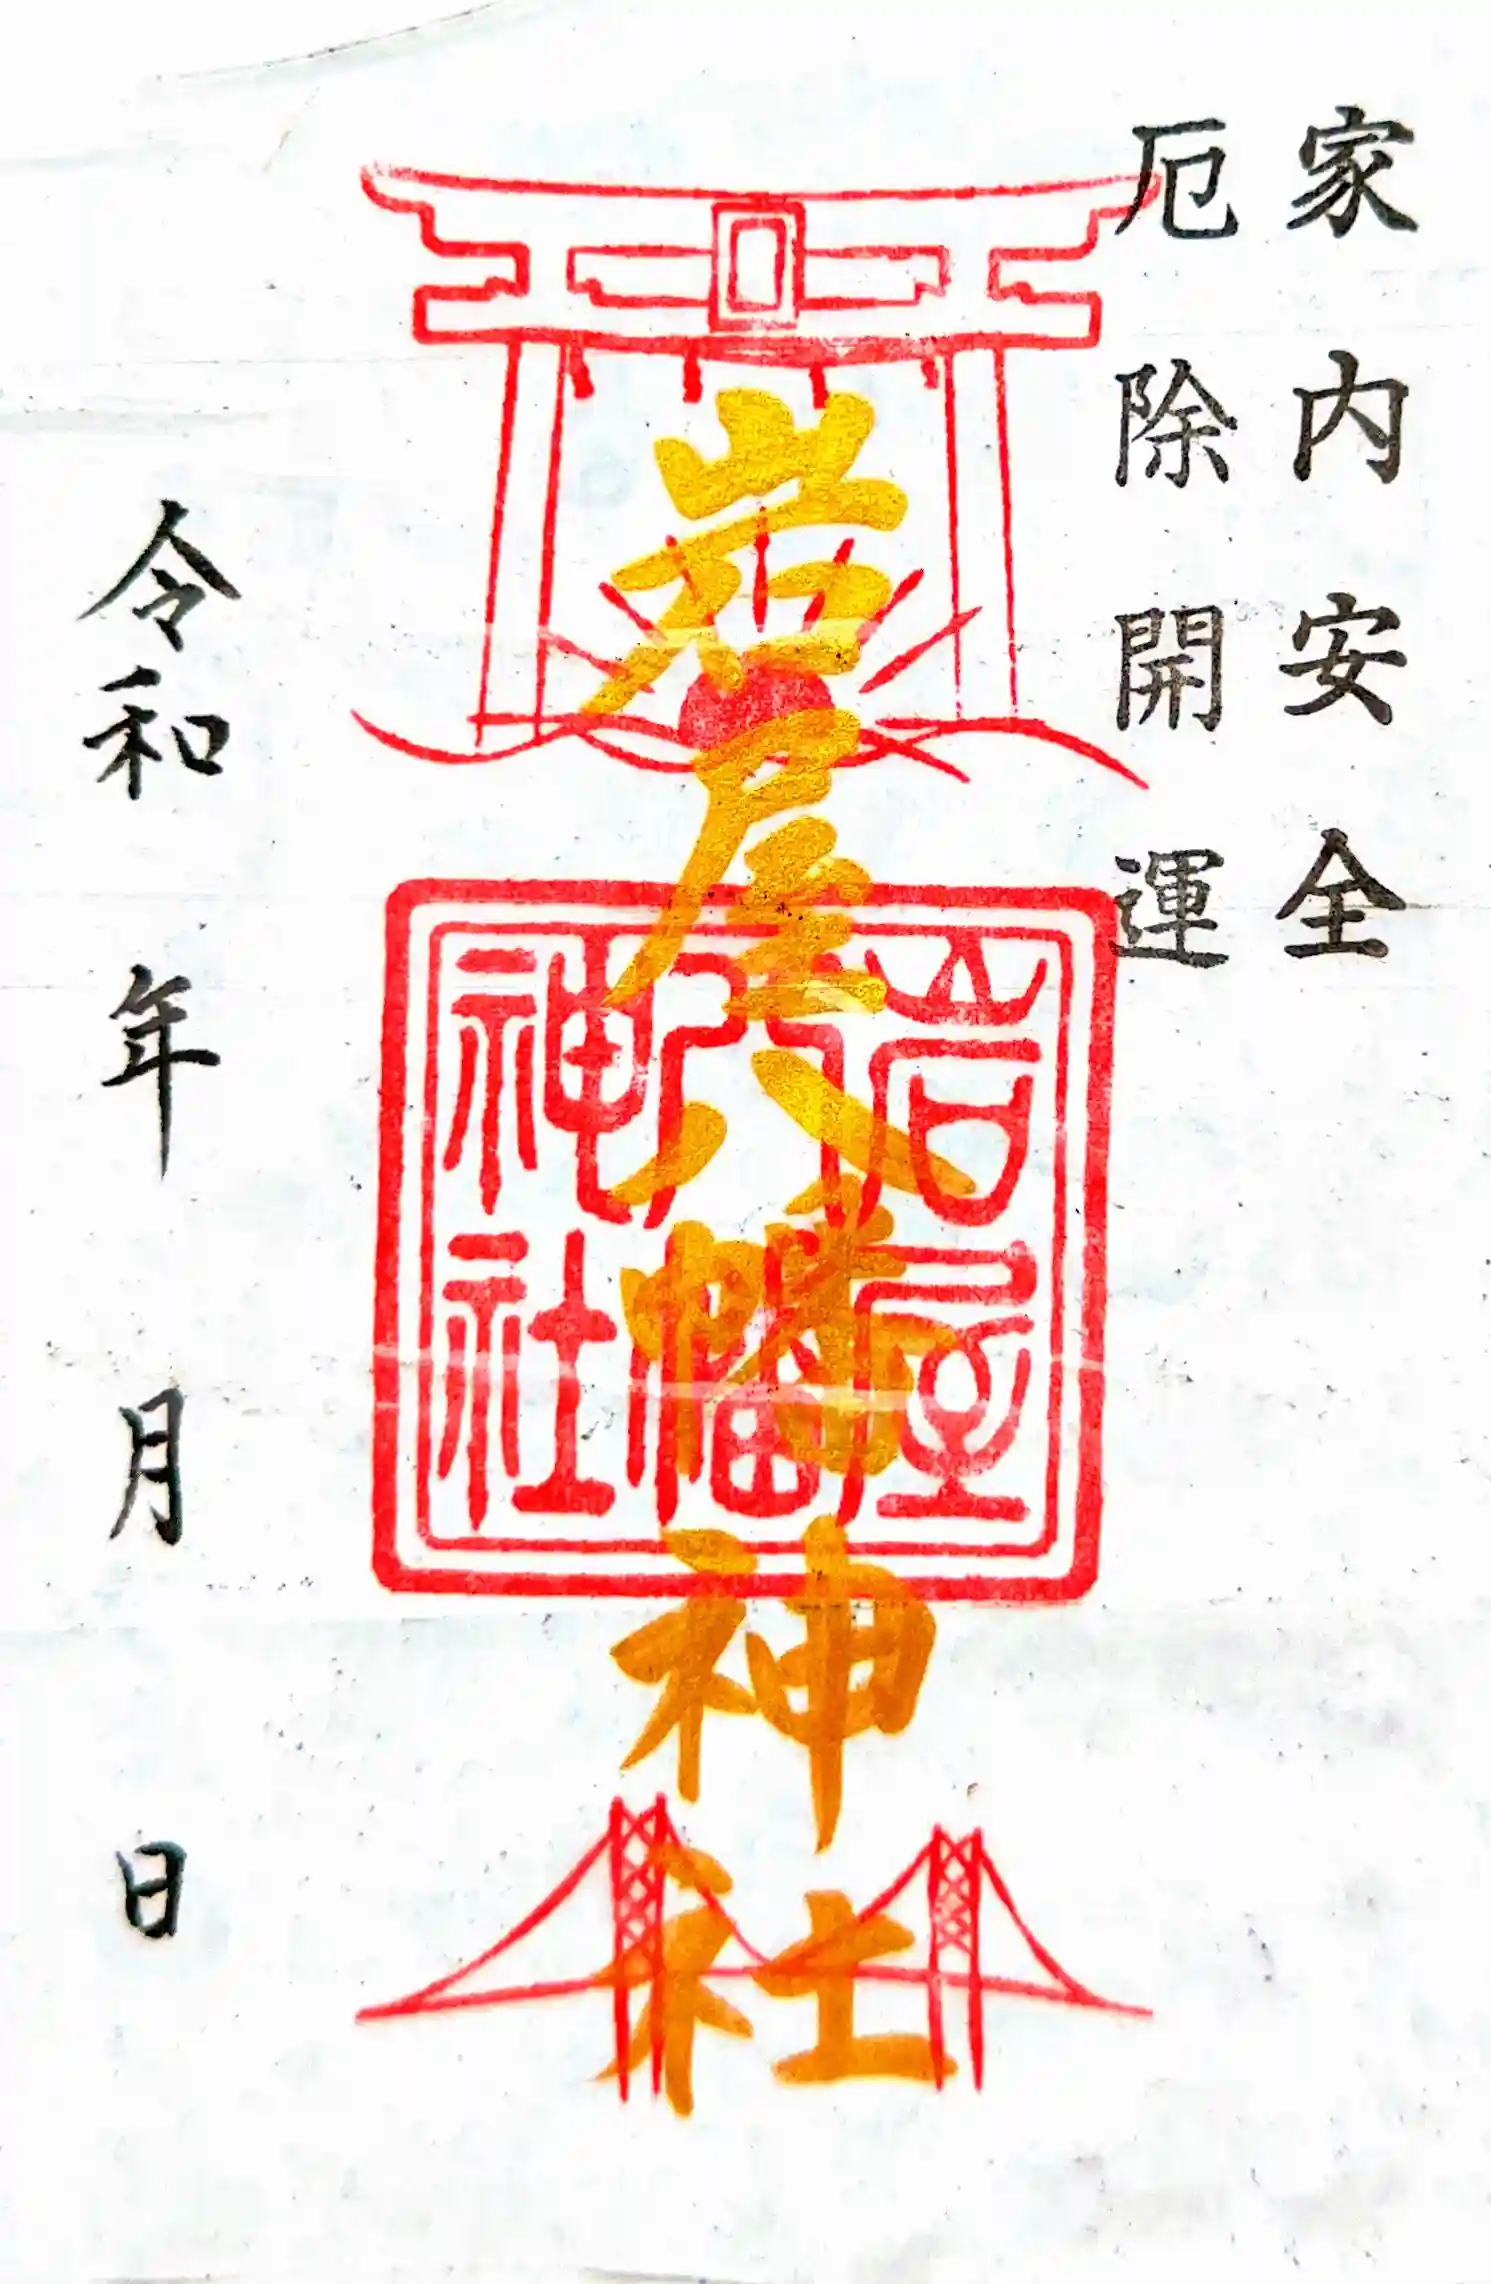 家内安全
厄除開運
岩屋八幡神社
岩屋
八幡
神社
令和 年 月 日